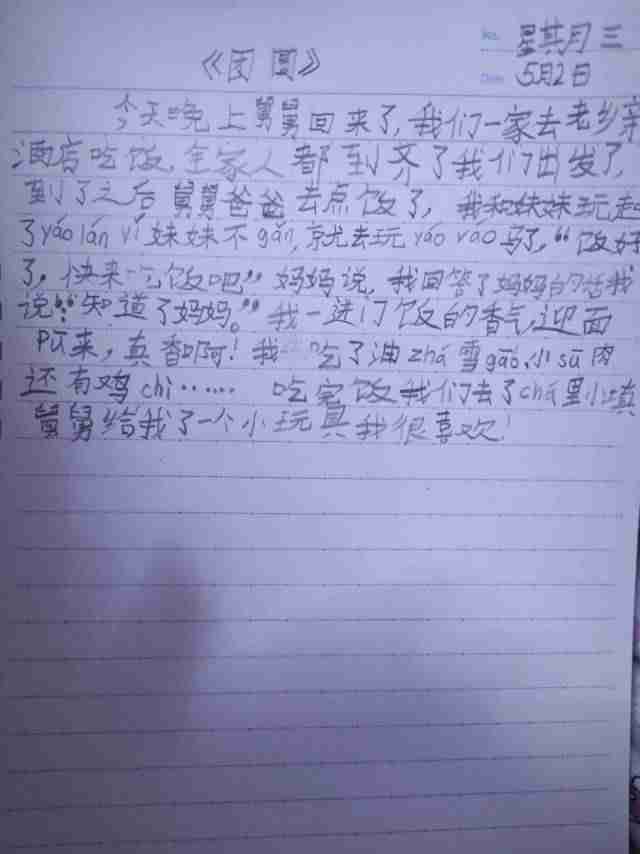 星其月三
《团圆》
5月2日
今天晚上舅舅回来了,我们一家去老乡亲
酒店吃饭,全家人都到齐了我们出发了,
到了之后舅舅爸爸去点饭了,我和妹妹玩起
了yáo lán yǐ妹妹不gǎn,就去玩yáo yao马了,“饭好
了,快来吃饭吧”妈妈说,我回答了妈妈的话我
说:“知道了妈妈。”我一进门饭的香气,迎面
pū来,真香啊!我吃了油zhá雪gāo、小sū肉
还有鸡chì…… 吃完饭我们去了chá里小填
舅舅给我了一个小玩具我很喜欢!